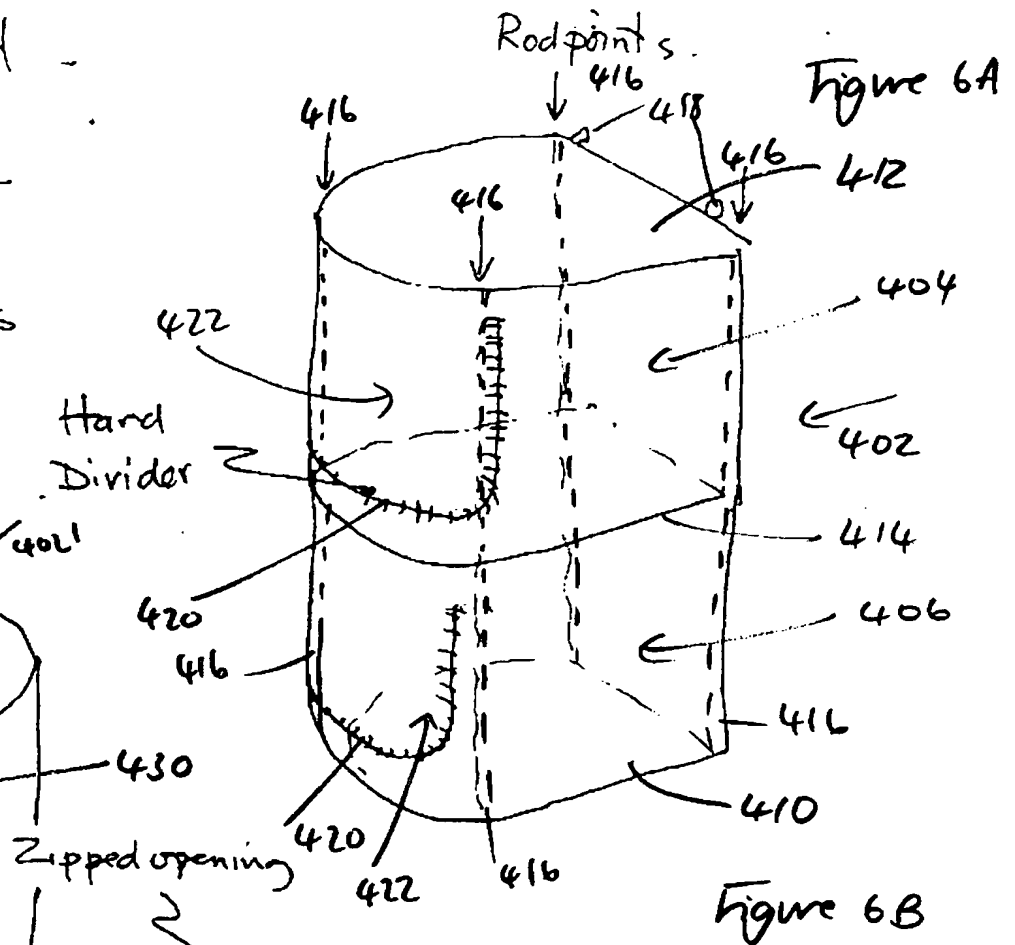 Rod points
416
Figure 6A
416
418
416
412
416
404
422
Hard
Divider
402
402'
414
420
406
416
416
430
410
Zipped opening
420
422
416
Figure 6B